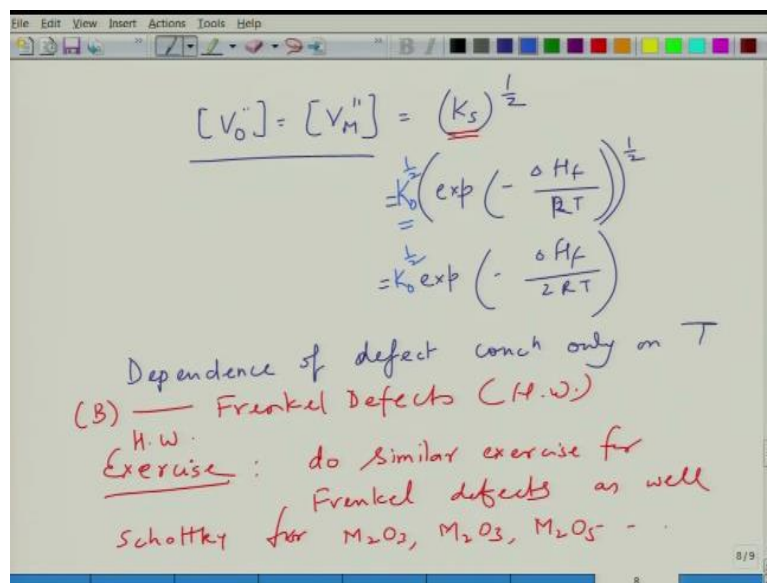 File Edit View Insert Actions Tools Help
[V_O^{..}] = [V_M^{''}] = (K_s)^{1/2}
= K_0^{1/2} (exp (- ΔH_f / RT))^{1/2}
= K_0^{1/2} exp (- ΔH_f / 2RT)
Dependence of defect concn only on T
(B) — Frenkel Defects (H.W.)
H.W.
Exercise : do similar exercise for
Frenkel defects as well
Schottky for M₂O₃, M₂O₃, M₂O₅ - - .
8/9
8